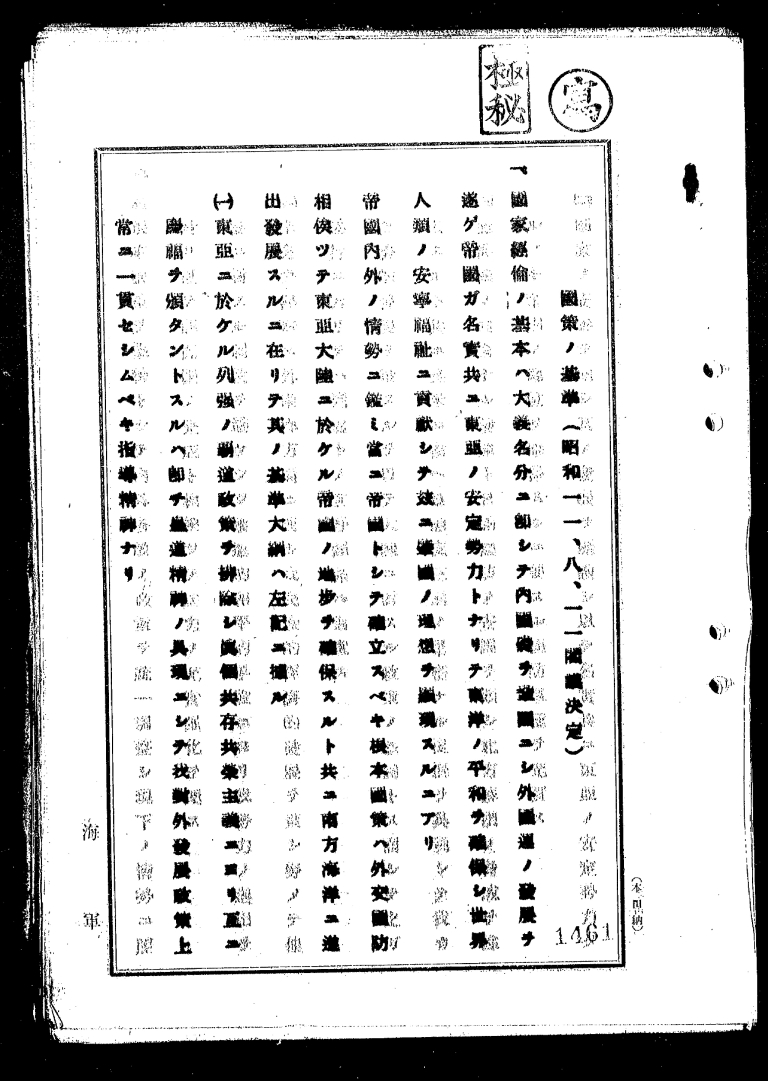 寫
極秘
國策ノ基準(昭和一一、八、一一閣議決定)
一、國家經倫ノ基本ハ大義名分ニ卽シテ內國礎ヲ鞏固ニシ外國運ノ發展ヲ
遂ゲ帝國ガ名實共ニ東亞ノ安定勢力トナリテ東洋ノ平和ヲ確保シ世界
人類ノ安寧福祉ニ貢獻シテ玆ニ肇國ノ理想ヲ顯現スルニアリ
帝國內外ノ情勢ニ鑑ミ當ニ帝國トシテ確立スベキ根本國策ハ外交國防
相俟ツテ東亞大陸ニ於ケル帝國ノ地步ヲ確保スルト共ニ南方海洋ニ進
出發展スルニ在リテ其ノ基準大綱ハ左記ニ據ル
(一)東亞ニ於ケル列强ノ覇道政策ヲ排除シ眞個共存共榮主義ニヨリ互ニ
慶福ヲ頒タントスルハ卽チ皇道精神ノ具現ニシテ我對外發展政策上
常ニ一貫セシムベキ指導精神ナリ
海軍
1461